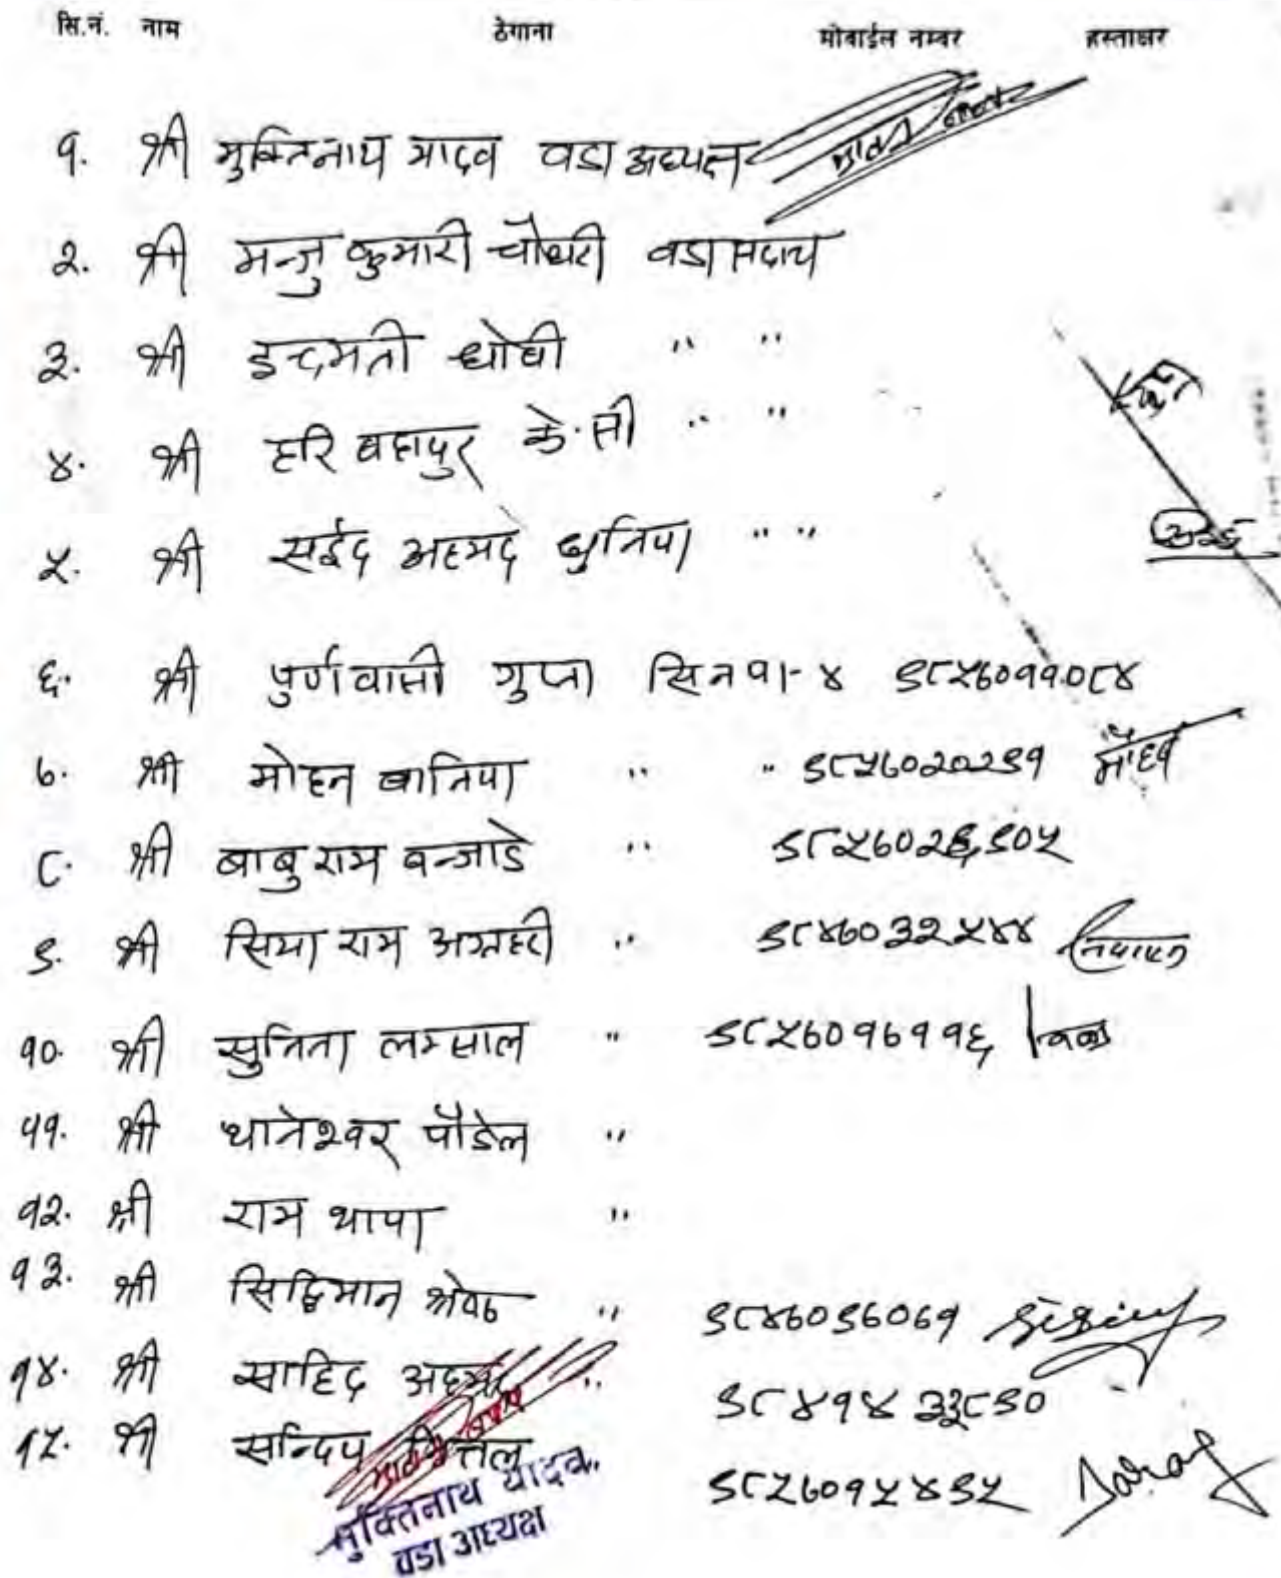 सि.नं. नाम ठेगाना मोबाईल नम्बर हस्ताक्षर
१. श्री मुक्तिनाथ यादव वडा अध्यक्ष
२. श्री मन्जु कुमारी चौधरी वडा सदस्य
३. श्री इन्द्रमती धोवी " "
४. श्री हरि बहादुर के.सी " "
५. श्री सईद अहमद धुनिया " "
६. श्री पुर्णवासी गुप्ता सि न पा-४ ९८५७०११०८४
७. श्री मोहन बानिया " " ९८५७०२०२९१ मोहन
८. श्री बाबुराम बन्जाडे " ९८५७०२६९०५
९. श्री सिया राम अग्रहरी " ९८४७०३२५४४
१०. श्री सुनिता लम्साल " ९८५७०१७११६
११. श्री थानेश्वर पौडेल "
१२. श्री राम थापा "
१३. श्री सिद्धिमान श्रेष्ठ " ९८४७०९७०७१
१४. श्री साहिद अहमद " ९८४१४३३८९०
१५. श्री सन्दिप मित्तल ९८५७०१५४९५
मुक्तिनाथ यादव
वडा अध्यक्ष